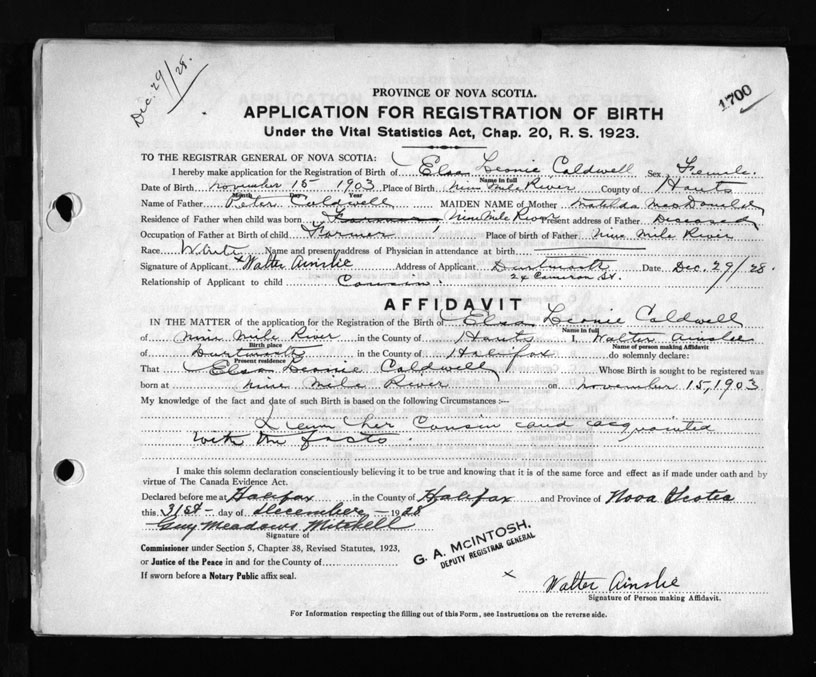 Dec. 29/28.
1700
PROVINCE OF NOVA SCOTIA.
APPLICATION FOR REGISTRATION OF BIRTH
Under the Vital Statistics Act, Chap. 20, R. S. 1923.
TO THE REGISTRAR GENERAL OF NOVA SCOTIA:
I hereby make application for the Registration of Birth of Elsa Leonie Caldwell Sex Female.
Name in full
Date of Birth November 15 1903 Place of Birth Nine Mile River County of Hants
Month Year
Name of Father Peter Caldwell MAIDEN NAME of Mother Matilda MacDonald
Residence of Father when child was born Nine Mile River Present address of Father Deceased
Occupation of Father at Birth of child Farmer Place of birth of Father Nine Mile River
Race White Name and present address of Physician in attendance at birth
Signature of Applicant x Walter Ainslie Address of Applicant Dartmouth Date Dec. 29/28.
Relationship of Applicant to child Cousin. 24 Cameron St.
AFFIDAVIT
IN THE MATTER of the application for the Registration of the Birth of Elsa Leonie Caldwell
Name in full
of Nine Mile River in the County of Hants I, Walter Ainslie
Birth place Name of person making Affidavit
of Dartmouth in the County of Halifax do solemnly declare:
Present residence
That Elsa Leonie Caldwell Whose Birth is sought to be registered was
born at Nine Mile River on November 15, 1903
My knowledge of the fact and date of such Birth is based on the following Circumstances :--
I am her Cousin and acquainted
with the facts.
I make this solemn declaration conscientiously believing it to be true and knowing that it is of the same force and effect as if made under oath and by
virtue of The Canada Evidence Act.
Declared before me at Halifax in the County of Halifax and Province of Nova Scotia
this 31st day of December 1928
Guy Meadows Mitchell
Signature of
Commissioner under Section 5, Chapter 38, Revised Statutes, 1923,
or Justice of the Peace in and for the County of
If sworn before a Notary Public affix seal.
G. A. McINTOSH,
DEPUTY REGISTRAR GENERAL
x Walter Ainslie
Signature of Person making Affidavit.
For Information respecting the filling out of this Form, see Instructions on the reverse side.